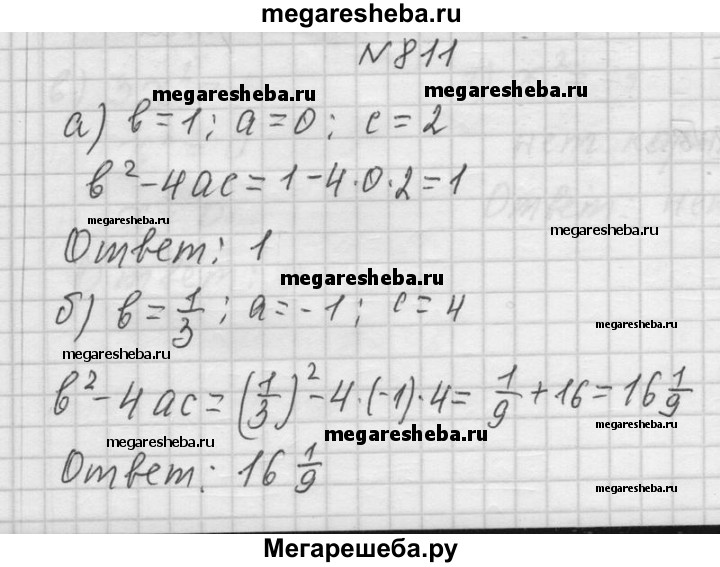 megaresheba.ru
N811
megaresheba.ru megaresheba.ru
а) в=1; а=0; с=2
в²-4ас=1-4·0·2=1
megaresheba.ru
megaresheba.ru
Ответ: 1
megaresheba.ru
б) в=1/3; а=-1; с=4
megaresheba.ru
megaresheba.ru
в²-4ас=(1/3)²-4·(-1)·4=1/9+16=16 1/9
megaresheba.ru megaresheba.ru megaresheba.ru
Ответ: 16 1/9
megaresheba.ru
Мегарешеба.ру